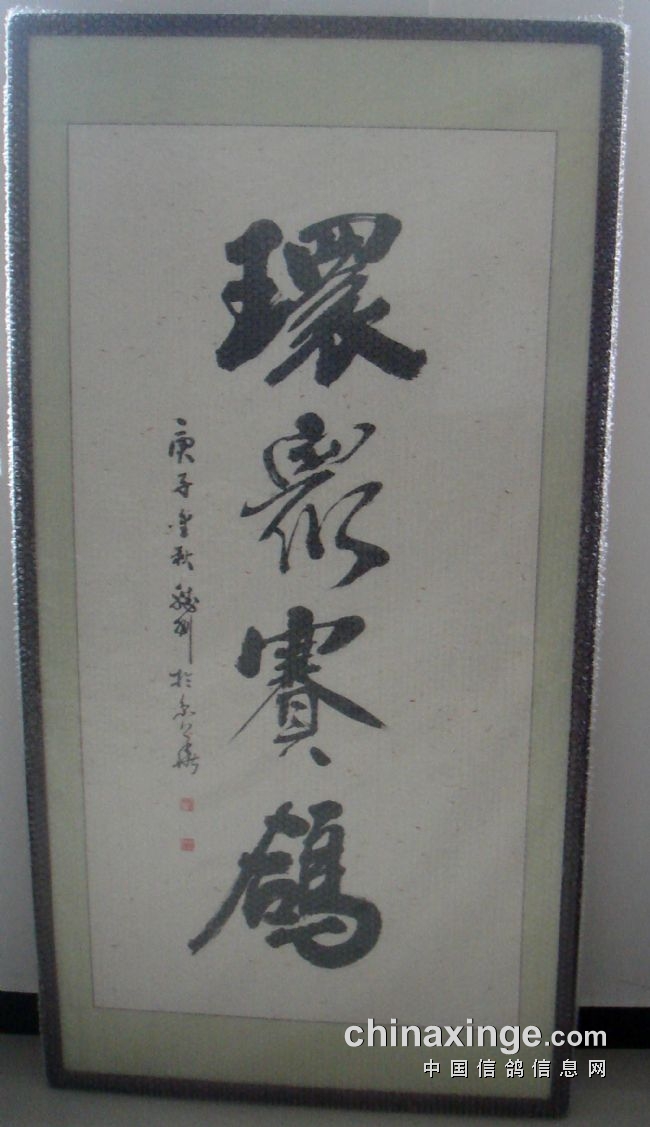 環賽鴿
庚子金秋於京華
chinaxinge.com
中国信鸽信息网